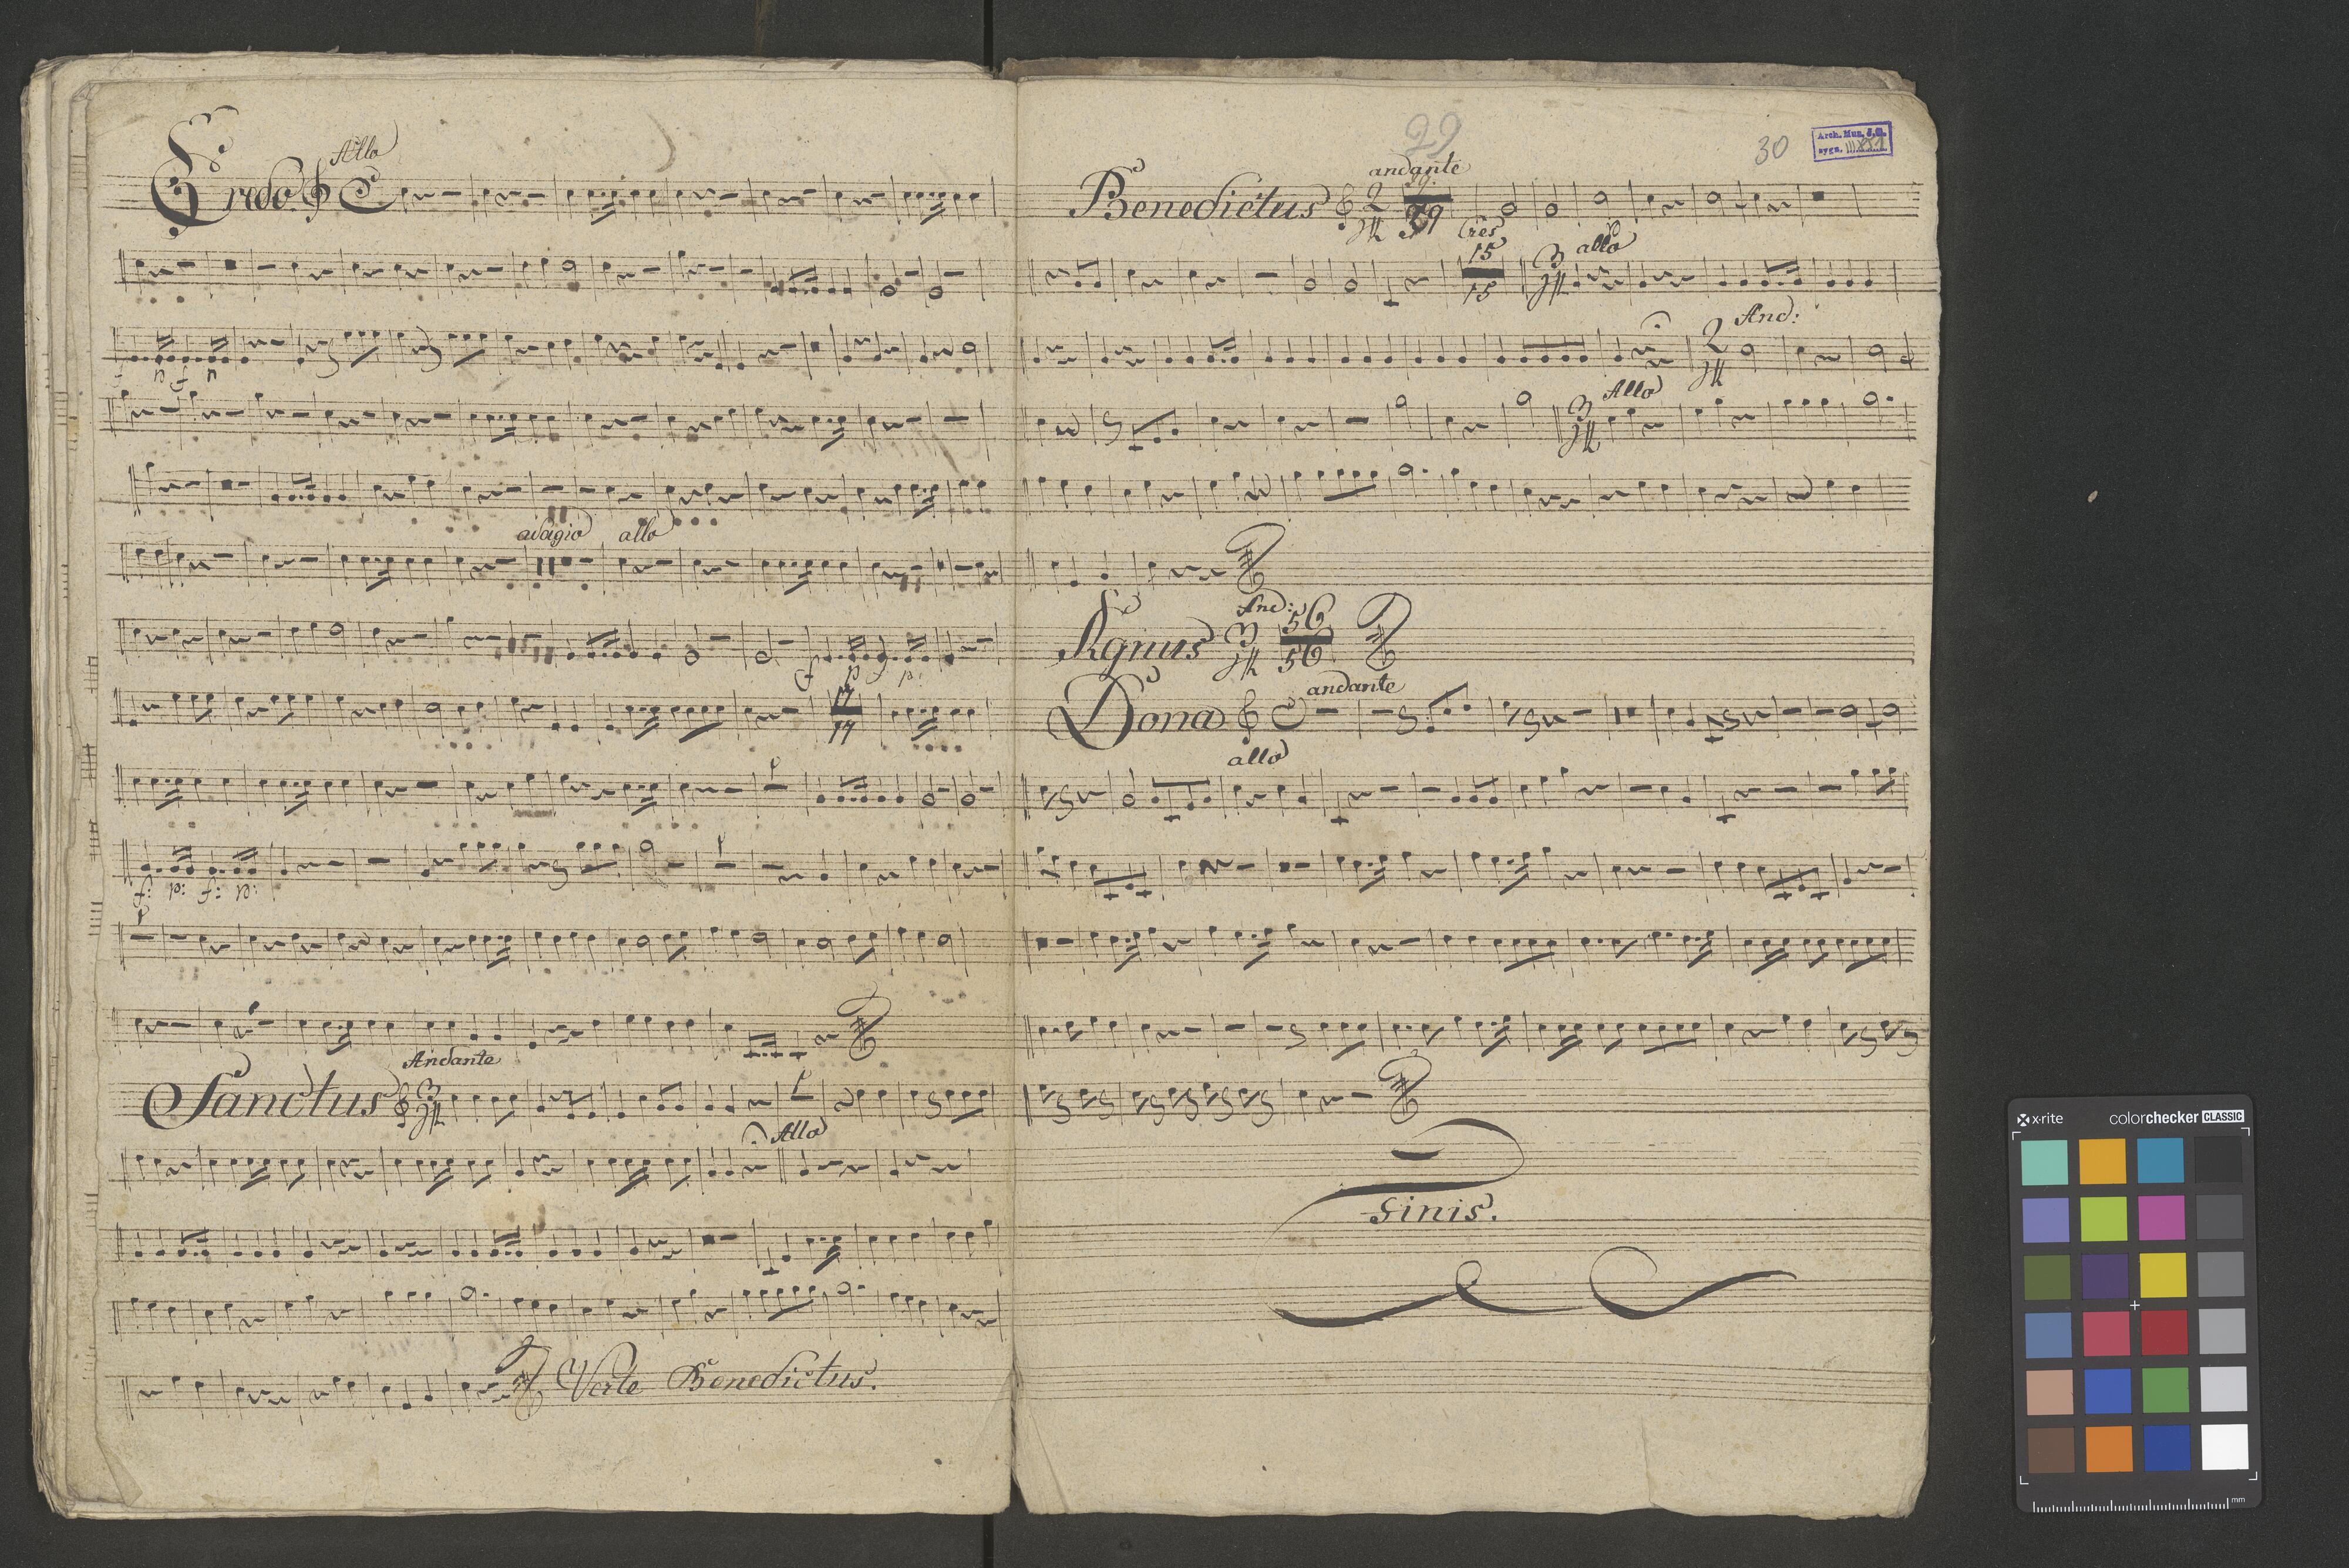 Credo Allo
f p f p
adagio allo
f p f p:
17
17
f: p: f: p:
Sanctus Andante 3/4
Allo
Verte Benedictus.
29
30
Arch. Muz. J.G.
sygn. III
Benedictus andante 2/4
29
Cres
15
15
3/4 allo
2/4 And:
3/4 Allo
Agnus And: 3/4 56
56
Dona andante
allo
Finis.
x-rite colorchecker CLASSIC
mm